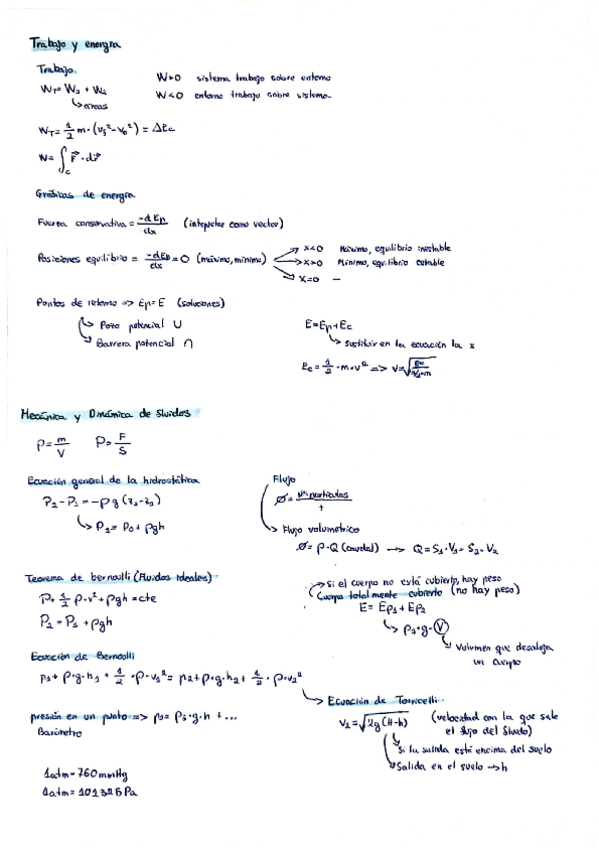 Trabajo y energía
Trabajo.
W>0 sistema trabajo sobre entorno
W_T = W_1 + W_2
W<0 entorno trabajo sobre sistema
↳ areas
W_T = 1/2 m · (v_f² - v_0²) = ΔEc
W = ∫_C F⃗ · dr⃗
Gráficas de energía
Fuerza conservativa = -dEp/dx (interpretar como vector)
Posiciones equilibrio = -dEp/dx = 0 (máximo, mínimo)
x<0 Máximo, equilibrio inestable
x>0 Mínimo, equilibrio estable
x=0 —
Puntos de retorno => Ep = E (soluciones)
↳ Pozo potencial U
↳ Barrera potencial ∩
E = Ep + Ec
↳ sustituir en la ecuación la x
Ec = 1/2 · m · v² => v = √(Ec/1/2·m)
Mecánica y Dinámica de fluidos
ρ = m/V P = F/S
Ecuación general de la hidrostática
P_2 - P_1 = -ρg (z_2 - z_1)
↳ P_2 = P_0 + ρgh
Flujo
Ø = Nº partículas / t
↳ Flujo volumétrico
Ø = ρ · Q (caudal) → Q = S_1 · V_1 = S_2 · V_2
Teorema de bernoulli (Fluidos Ideales)
P + 1/2 ρ · v² + ρgh = cte
P_2 = P_1 + ρgh
Si el cuerpo no está cubierto, hay peso
Cuerpo totalmente cubierto (no hay peso)
E = Ep_1 + Ep_2
↳ ρ_1 · g · V
↳ Volumen que desaloja
un cuerpo
Ecuación de Bernoulli
p_1 + ρ · g · h_1 + 1/2 · ρ · v_1² = p_2 + ρ · g · h_2 + 1/2 · ρ · v_2²
↳ Ecuación de Torricelli
V_2 = √2g (H-h) (velocidad con la que sale
el flujo del fluido)
↳ Si la salida está encima del suelo
↳ Salida en el suelo → h
presión en un punto => p_0 = ρ_1 · g · h + ...
Barómetro
1 atm = 760 mmHg
1 atm = 101325 Pa